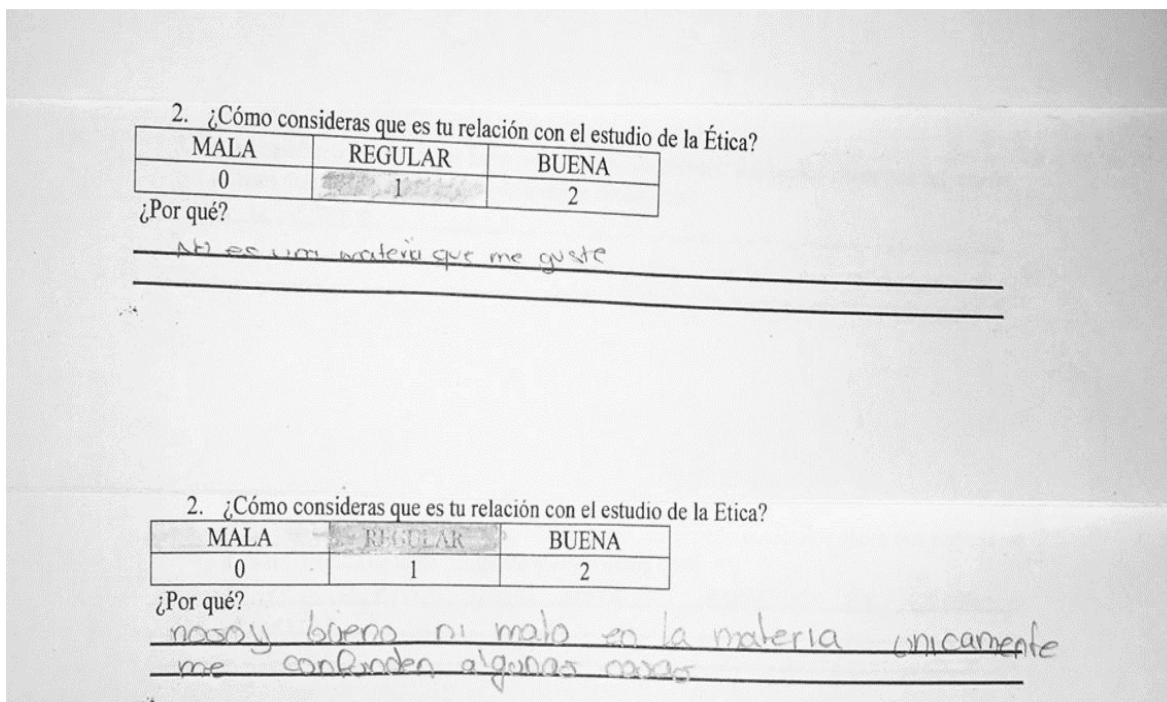 2. ¿Cómo consideras que es tu relación con el estudio de la Ética?
MALA REGULAR BUENA
0 1 2
¿Por qué?
No es una materia que me guste
2. ¿Cómo consideras que es tu relación con el estudio de la Etica?
MALA REGULAR BUENA
0 1 2
¿Por qué?
no soy bueno ni malo en la materia unicamente
me confunden algunas cosas